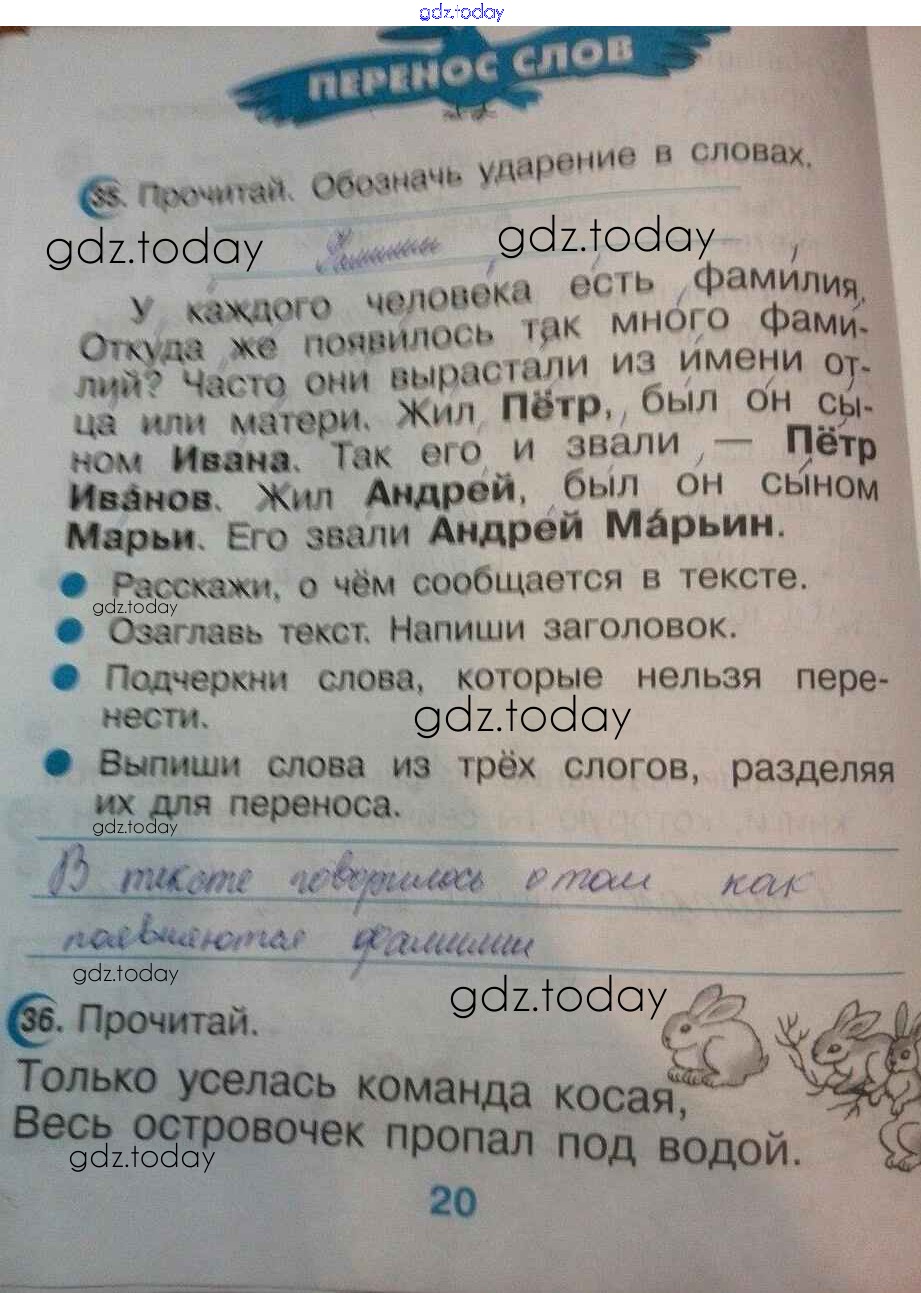 gdz.today
ПЕРЕНОС СЛОВ
35. Прочитай. Обозначь ударение в словах.
gdz.today Фамилии gdz.today
У каждого человека есть фами́лия.
Откуда же появи́лось так мно́го фами́-
лий? Часто они выраста́ли из и́мени от-
ца или матери. Жил Пётр, бы́л о́н сы́-
ном Ивана. Так его и звали — Пётр
Ива́нов. Жил Андре́й, бы́л он сы́ном
Марьи. Его звали Андре́й Ма́рьин.
Расскажи, о чём сообщается в тексте.
gdz.today
Озаглавь текст. Напиши заголовок.
Подчеркни слова, которые нельзя пере-
нести.
gdz.today
Выпиши слова из трёх слогов, разделяя
их для переноса.
gdz.today
В тексте говорилось о том как
появляются фамилии
gdz.today
gdz.today
36. Прочитай.
Только уселась команда косая,
Весь островочек пропал под водой.
gdz.today
20